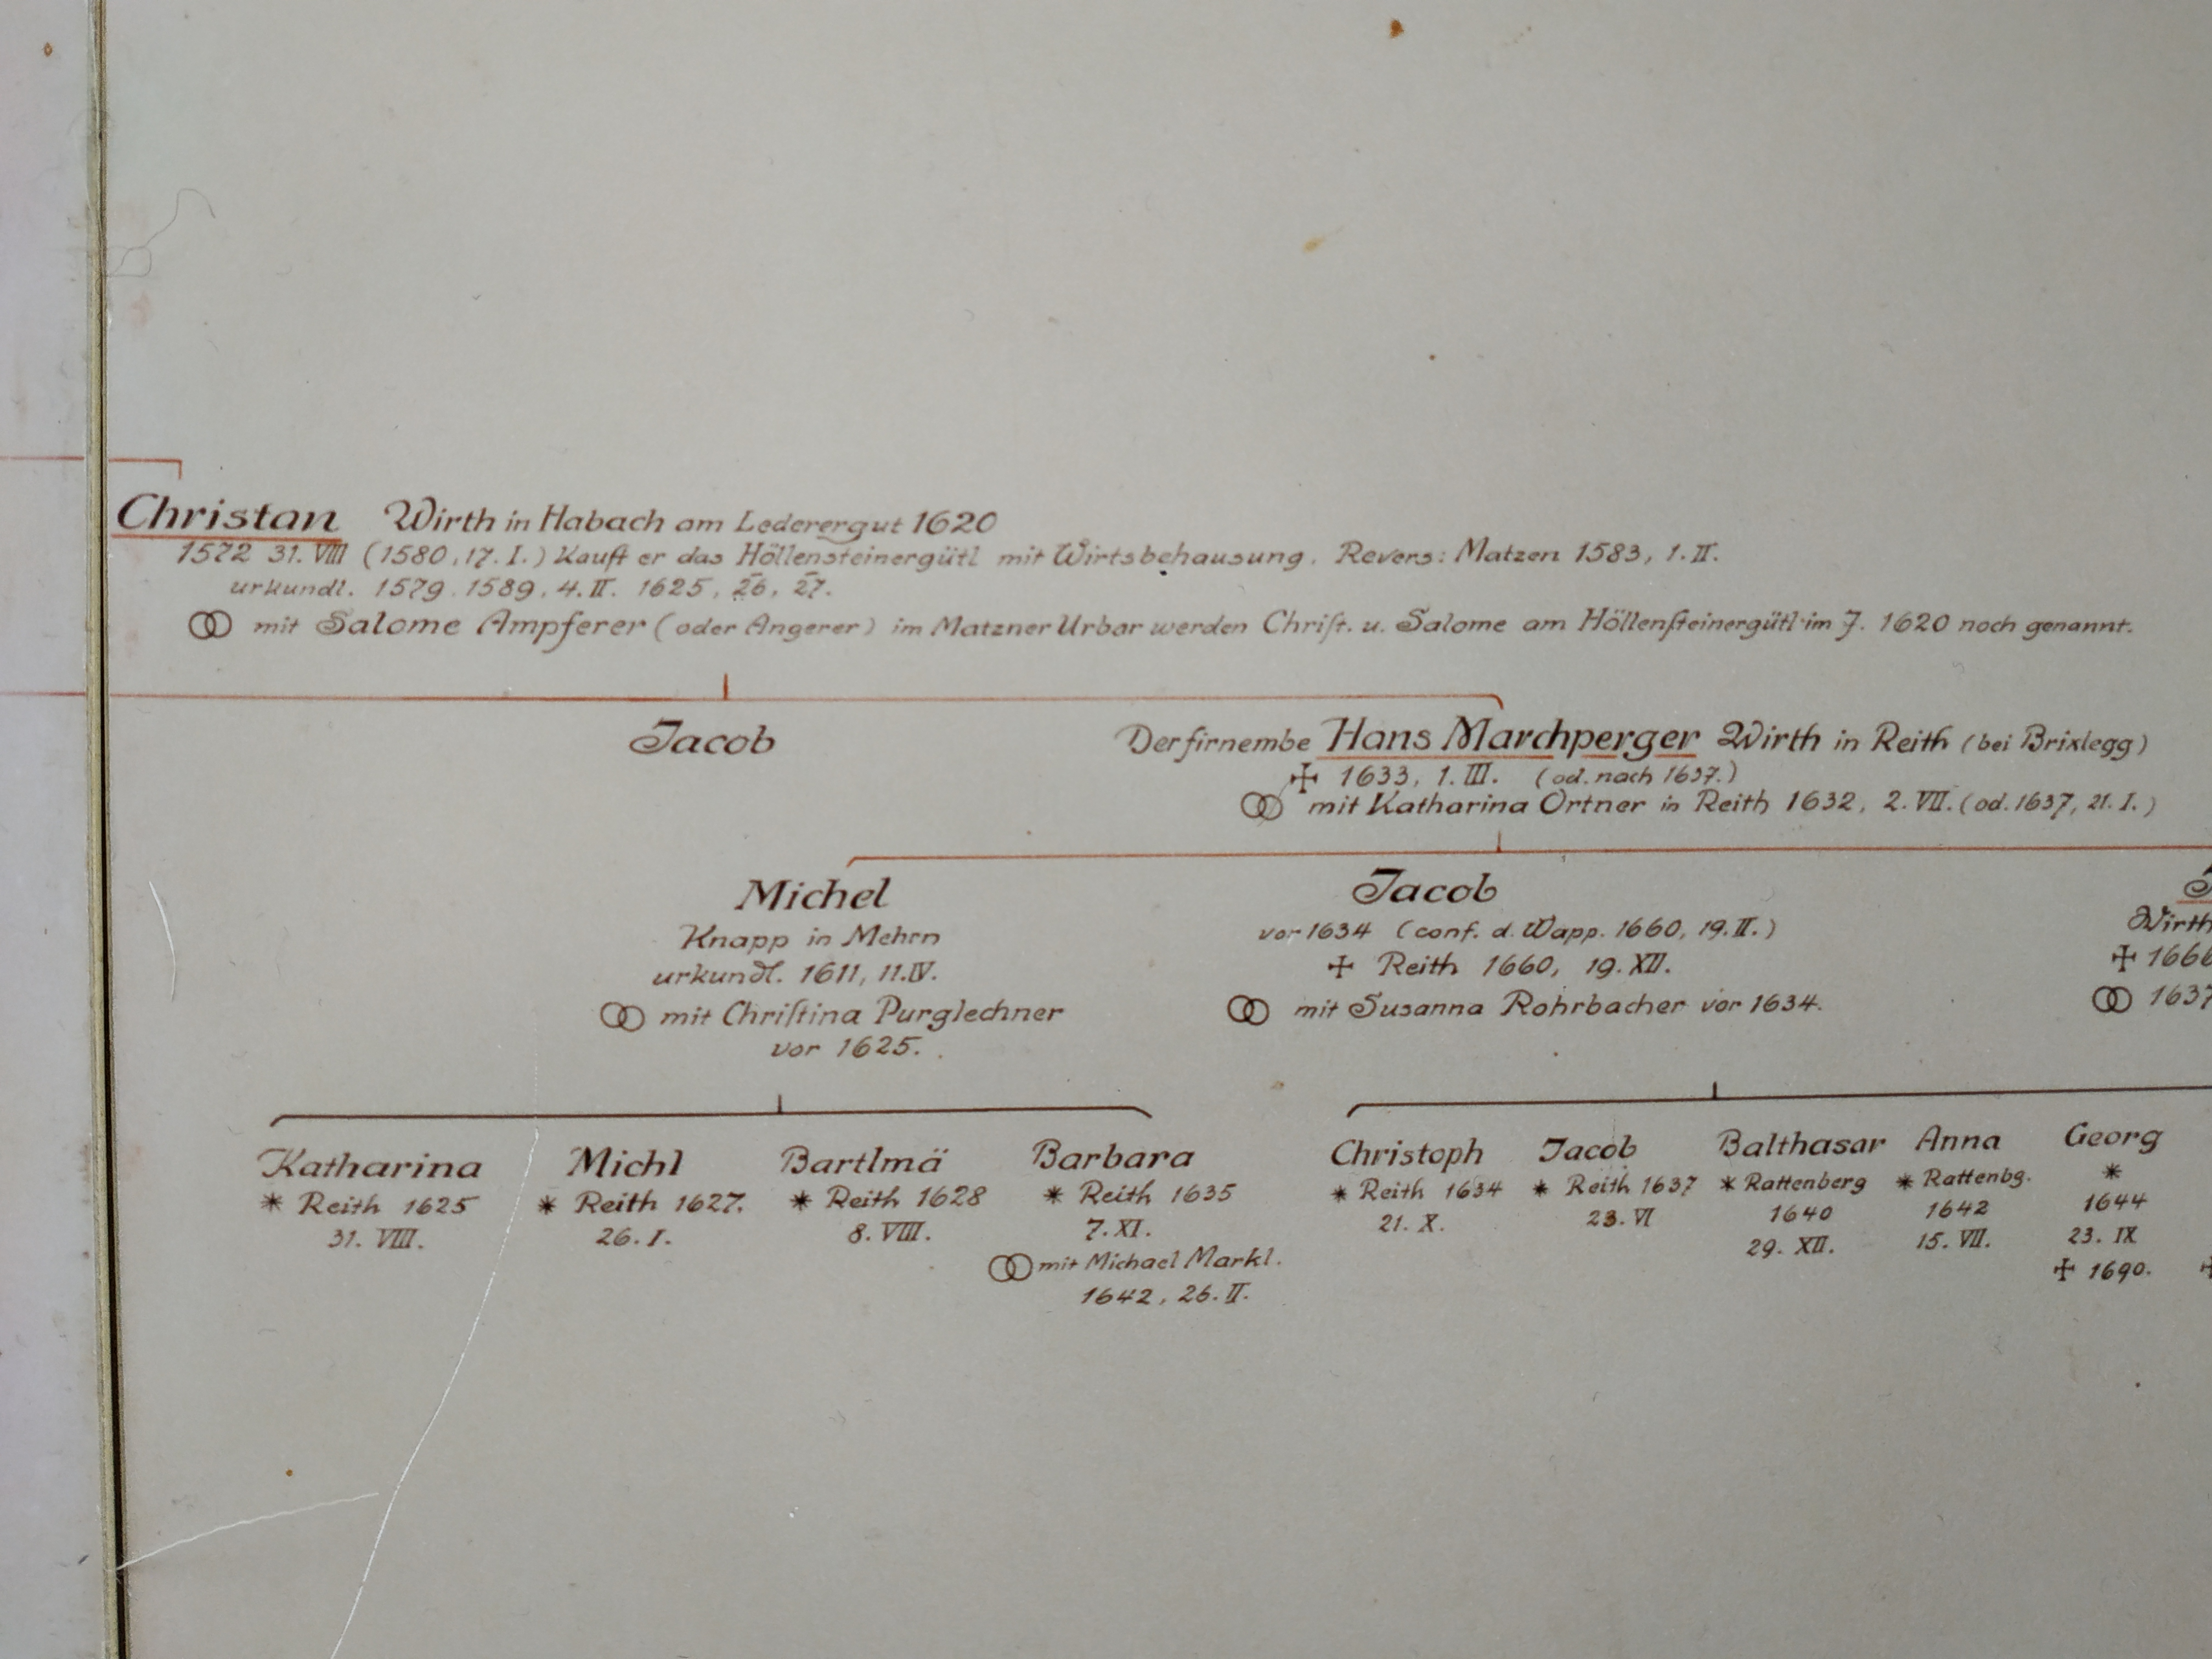 Christan Wirth in Habach am Lederergut 1620
1572 31. VIII (1580, 17. I.) Kauft er das Höllensteinergütl mit Wirtsbehausung. Revers: Matzen 1583, 1. II.
urkundl. 1579. 1589, 4. II. 1625, 26, 27.
mit Salome Ampferer (oder Angerer) im Matzner Urbar werden Christ. u. Salome am Höllensteinergütl im J. 1620 noch genannt.
Jacob
Der firnembe Hans Marchperger Wirth in Reith (bei Brixlegg)
✠ 1633, 1. III. (od. nach 1637.)
mit Katharina Ortner in Reith 1632, 2. VII. (od. 1637, 21. I.)
Michel
Knapp in Mehrn
urkundl. 1611, 11. IV.
mit Christina Purglechner
vor 1625.
Jacob
vor 1634 (conf. d. Wapp. 1660, 19. II.)
✠ Reith 1660, 19. XII.
mit Susanna Rohrbacher vor 1634.
Wirth
✠ 1666
1637
Katharina
* Reith 1625
31. VIII.
Michl
* Reith 1627.
26. I.
Bartlmä
* Reith 1628
8. VIII.
Barbara
* Reith 1635
7. XI.
mit Michael Markl.
1642, 26. II.
Christoph
* Reith 1634
21. X.
Jacob
* Reith 1637
23. VI
Balthasar
* Rattenberg
1640
29. XII.
Anna
* Rattenbg.
1642
15. VII.
Georg
*
1644
23. IX
✠ 1690.